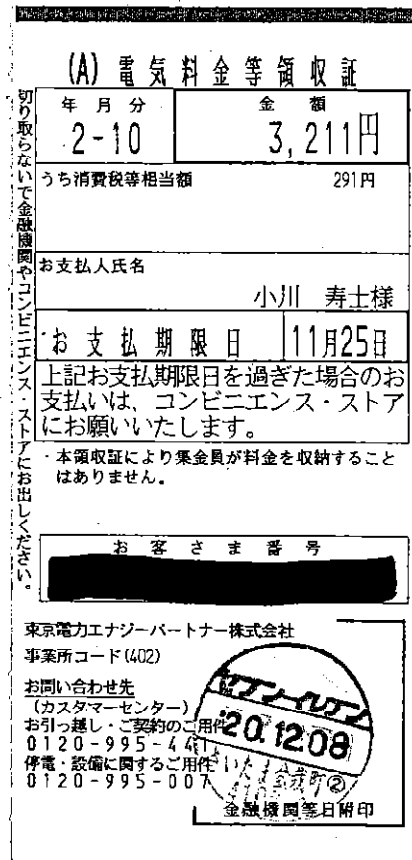 (A) 電気料金等領収証
切り取らないで金融機関やコンビニエンス・ストアにお出しください。
年月分
金額
2-10
3,211円
うち消費税等相当額 291円
お支払人氏名
小川 寿士様
お支払期限日 11月25日
上記お支払期限日を過ぎた場合のお
支払いは、コンビニエンス・ストア
にお願いいたします。
・本領収証により集金員が料金を収納すること
はありません。
お客さま番号
東京電力エナジーパートナー株式会社
事業所コード(402)
お問い合わせ先
(カスタマーセンター)
お引っ越し・ご契約のご用件
0120-995-441
停電・設備に関するご用件
0120-995-007
セブン-イレブン
'20.12.08
金融機関等日附印